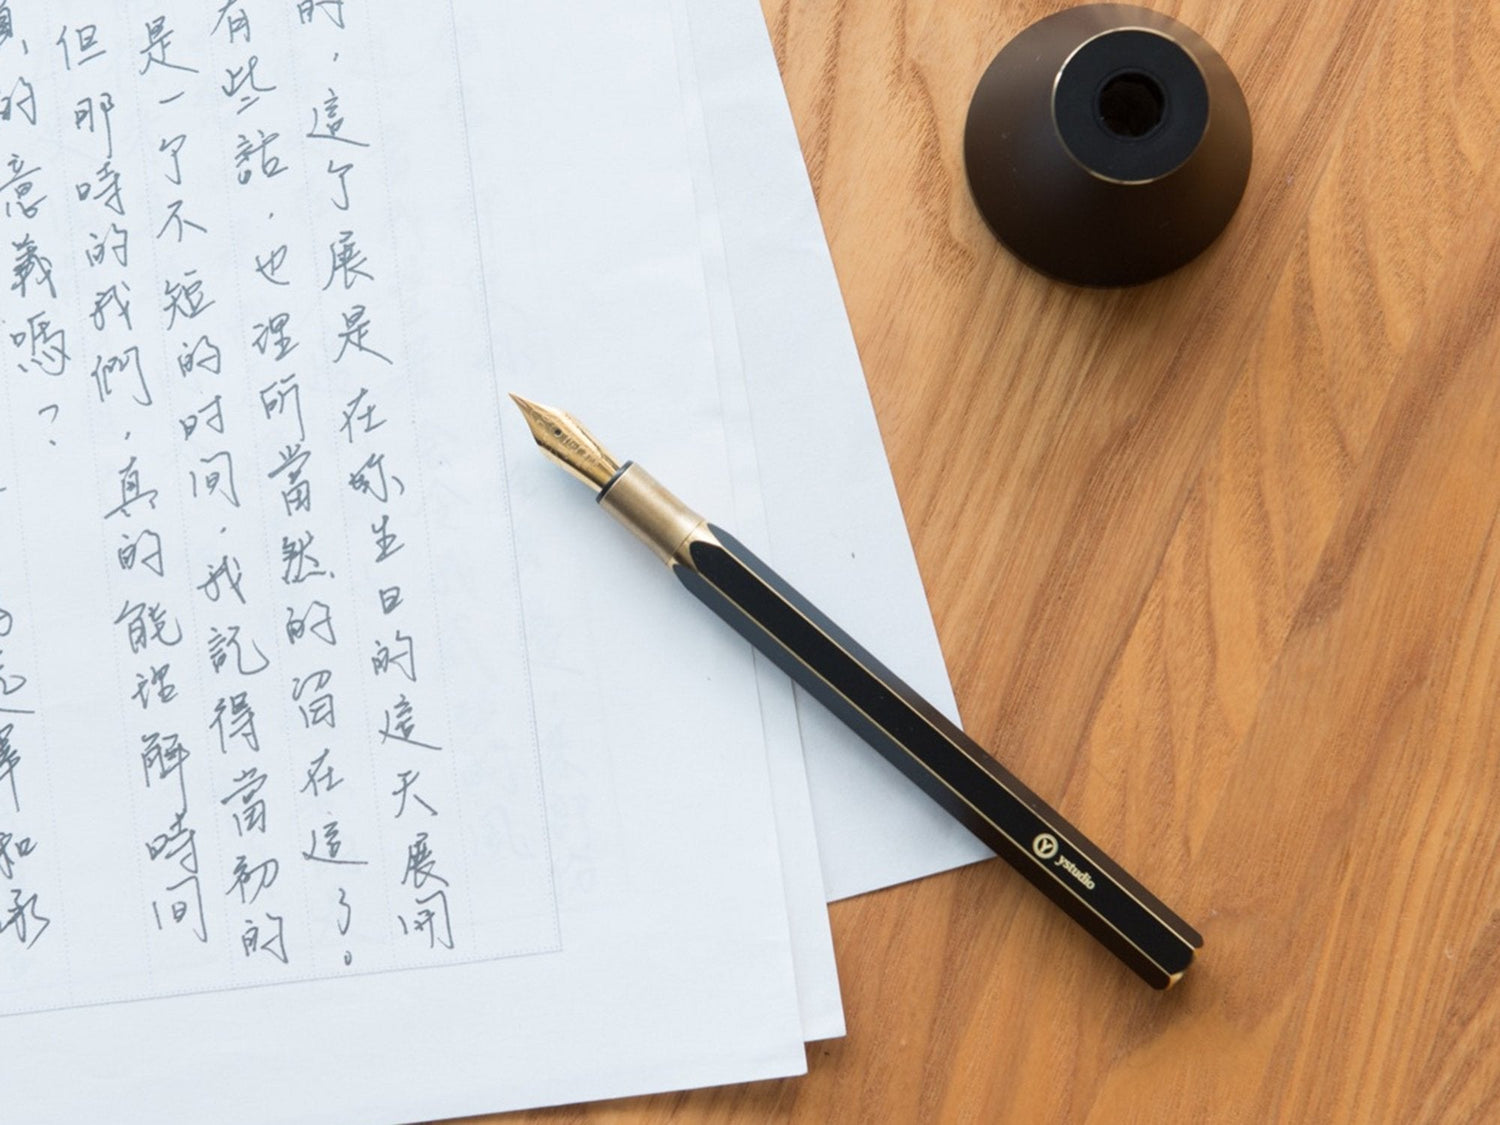 的，這個展是在妳生日的這天展開
有些話，也理所當然的留在這了。
是一个不短的时间，我記得當初的
但那時的我們，真的能理解時间
的意義嗎？
和承
ystudio